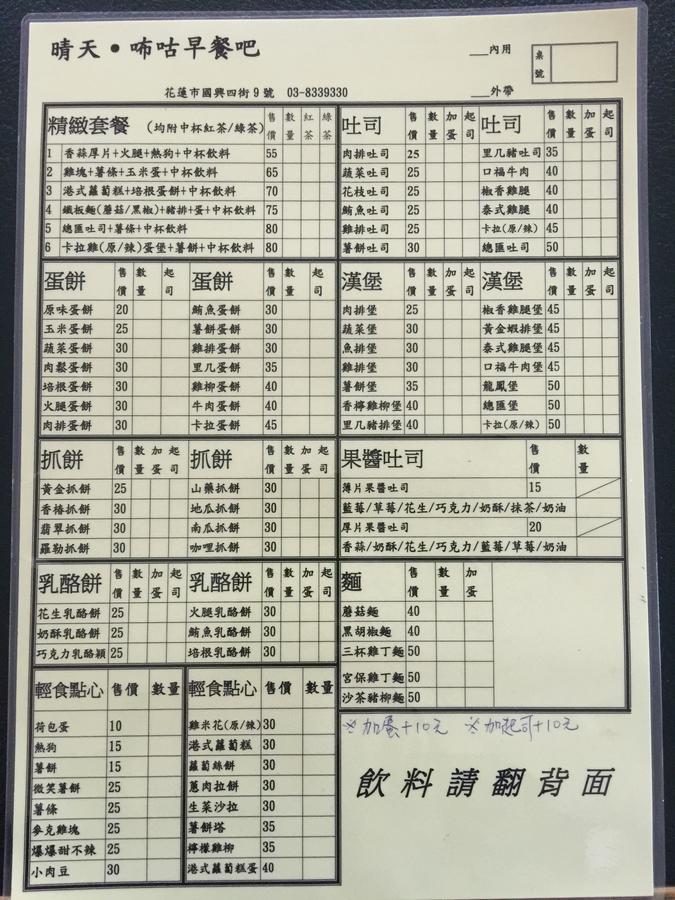 晴天•咘咕早餐吧
___內用
___外帶
桌號
花蓮市國興四街9號 03-8339330
精緻套餐 (均附中杯紅茶/綠茶) 售價 數量 紅茶 綠茶
1 香蒜厚片+火腿+熱狗+中杯飲料 55
2 雞塊+薯條+玉米蛋+中杯飲料 65
3 港式蘿蔔糕+培根蛋餅+中杯飲料 70
4 鐵板麵(蘑菇/黑椒)+豬排+蛋+中杯飲料 75
5 總匯吐司+薯條+中杯飲料 80
6 卡拉雞(原/辣)蛋堡+薯餅+中杯飲料 80
吐司 售價 數量 加蛋 起司
肉排吐司 25
蔬菜吐司 25
花枝吐司 25
鮪魚吐司 25
雞排吐司 25
薯餅吐司 30
吐司 售價 數量 加蛋 起司
里几豬吐司 35
口福牛肉 40
椒香雞腿 40
泰式雞腿 40
卡拉(原/辣) 45
總匯吐司 50
蛋餅 售價 數量 起司
原味蛋餅 20
玉米蛋餅 25
蔬菜蛋餅 30
肉鬆蛋餅 30
培根蛋餅 30
火腿蛋餅 30
肉排蛋餅 30
蛋餅 售價 數量 起司
鮪魚蛋餅 30
薯餅蛋餅 30
雞排蛋餅 30
里几蛋餅 35
雞柳蛋餅 40
牛肉蛋餅 40
卡拉蛋餅 45
漢堡 售價 數量 加蛋 起司
肉排堡 25
蔬菜堡 30
魚排堡 30
雞排堡 30
薯餅堡 35
香檸雞柳堡 40
里几豬排堡 40
漢堡 售價 數量 加蛋 起司
椒香雞腿堡 45
黃金蝦排堡 45
泰式雞腿堡 45
口福牛肉堡 45
龍鳳堡 50
總匯堡 50
卡拉(原/辣) 50
抓餅 售價 數量 加蛋 起司
黃金抓餅 25
香椿抓餅 30
翡翠抓餅 30
羅勒抓餅 30
抓餅 售價 數量 加蛋 起司
山藥抓餅 30
地瓜抓餅 30
南瓜抓餅 30
咖哩抓餅 30
果醬吐司 售價 數量
薄片果醬吐司 15
藍莓/草莓/花生/巧克力/奶酥/抹茶/奶油
厚片果醬吐司 20
香蒜/奶酥/花生/巧克力/藍莓/草莓/奶油
乳酪餅 售價 數量 加蛋 起司
花生乳酪餅 25
奶酥乳酪餅 25
巧克力乳酪穎 25
乳酪餅 售價 數量 加蛋 起司
火腿乳酪餅 30
鮪魚乳酪餅 30
培根乳酪餅 30
麵 售價 數量 加蛋
蘑菇麵 40
黑胡椒麵 40
三杯雞丁麵 50
宮保雞丁麵 50
沙茶豬柳麵 50
輕食點心 售價 數量
荷包蛋 10
熱狗 15
薯餅 15
微笑薯餅 25
薯條 25
麥克雞塊 25
爆爆甜不辣 25
小肉豆 30
輕食點心 售價 數量
雞米花(原/辣) 30
港式蘿蔔糕 30
蘿蔔絲餅 30
蔥肉拉餅 30
生菜沙拉 30
薯餅塔 35
檸檬雞柳 35
港式蘿蔔糕蛋 40
※加蛋+10元 ※加起司+10元
飲料請翻背面